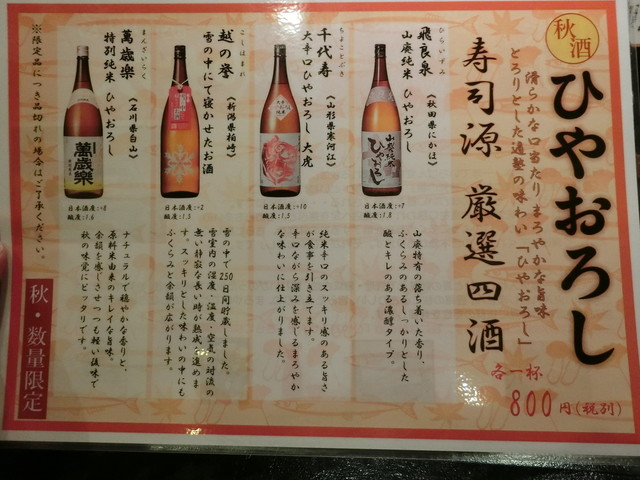 秋酒
ひやおろし
滑らかな口当たり まろやかな旨味
とろりとした適塾の味わい「ひやおろし」
寿司源 厳選四酒
各一杯
800円(税別)
ひらいずみ
飛良泉
(秋田県にかほ)
山廃純米 ひやおろし
日本酒度:+8
酸度:1.7
山廃特有の落ち着いた香り、
ふくらみのあるしっかりとした
酸とキレのある濃醇タイプ。
ちよことぶき
千代寿
(山形県寒河江)
大辛口ひやおろし 大虎
日本酒度:+10
酸度:1.5
純米辛口のスッキリ感のある旨さ
が食事を引き立てます。
辛口ながら深みを感じるまろやか
な味わいに仕上がりました。
こしほまれ
越の誉
(新潟県柏崎)
雪の中にて寝かせたお酒
日本酒度:+2
酸度:1.5
雪の中で250日間貯蔵しました。
雪室内の温度・湿度・空気の対流の
無い静寂な長い時が熟成を進めま
す。スッキリとした味わいの中にも
ふくらみと余韻が広がります。
まんざいらく
萬歳樂
(石川県白山)
特別純米 ひやおろし
日本酒度:+8
酸度:1.6
ナチュラルで穏やかな香りと、
原料米由来のキレイな旨味。
余韻を感じさせつつも軽い後味で
秋の味覚にピッタリです。
※限定品につき品切れの場合はご了承ください。
秋・数量限定